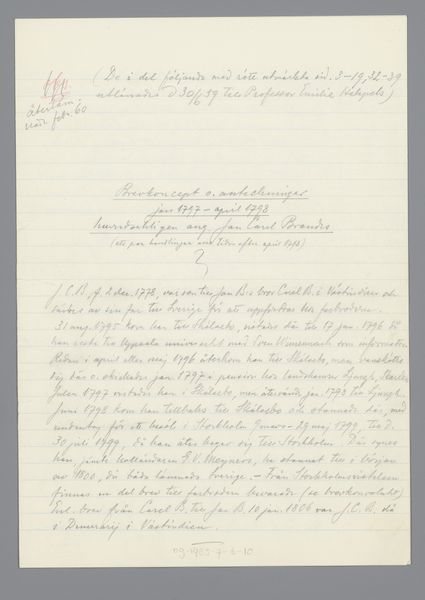 (De i det följande med rött utmärkta sid. 3-19, 32-39
utlånades d 30/6 39 till Professor Emilie
åter
feb. 60
Brevkoncept o. anteckningar
jan 1797 - april 1798
huvudsakligen ang. Jan Carel Brandes
(ett par handlingar av tiden efter april 1798)
J. C. B., f. 2 dec. 1778, var son till Jan B:s bror Carel B. i Västindien och
av sin far till Sverige för att uppfostras hos farbrodern.
31 aug. 1795 kom han till Skälsebo, vistades där till 17 jan. 1796 då
han reste till Uppsala universitet med Sven som informator.
Redan i april eller maj 1796 återkom han till Skälsebo, men
sig där o. skickades jan. 1797 i pension hos landskamrer
Julen 1797 vistades han i Skälsebo, men återvände jan. 1798 till
Juni 1798 kom han tillbaka till Skälsebo och stannade där, med
undantag för ett besök i Stockholm - 29 maj 1799, till d.
30 juli 1799, då han åter begav sig till Stockholm. Där synes
han, jämte holländaren E. V. Meyners, ha stannat till i början
av 1800, då båda lämnade Sverige. - Från Stockholmsvistelsen
finnas en del brev till farbrodern bevarade (se brevkonvolutet)
Enl. brev från Carel B. till Jan B. 10 jan. 1806 var J. C. B. då
i Demerary i Västindien.
09-1985-7-2-10